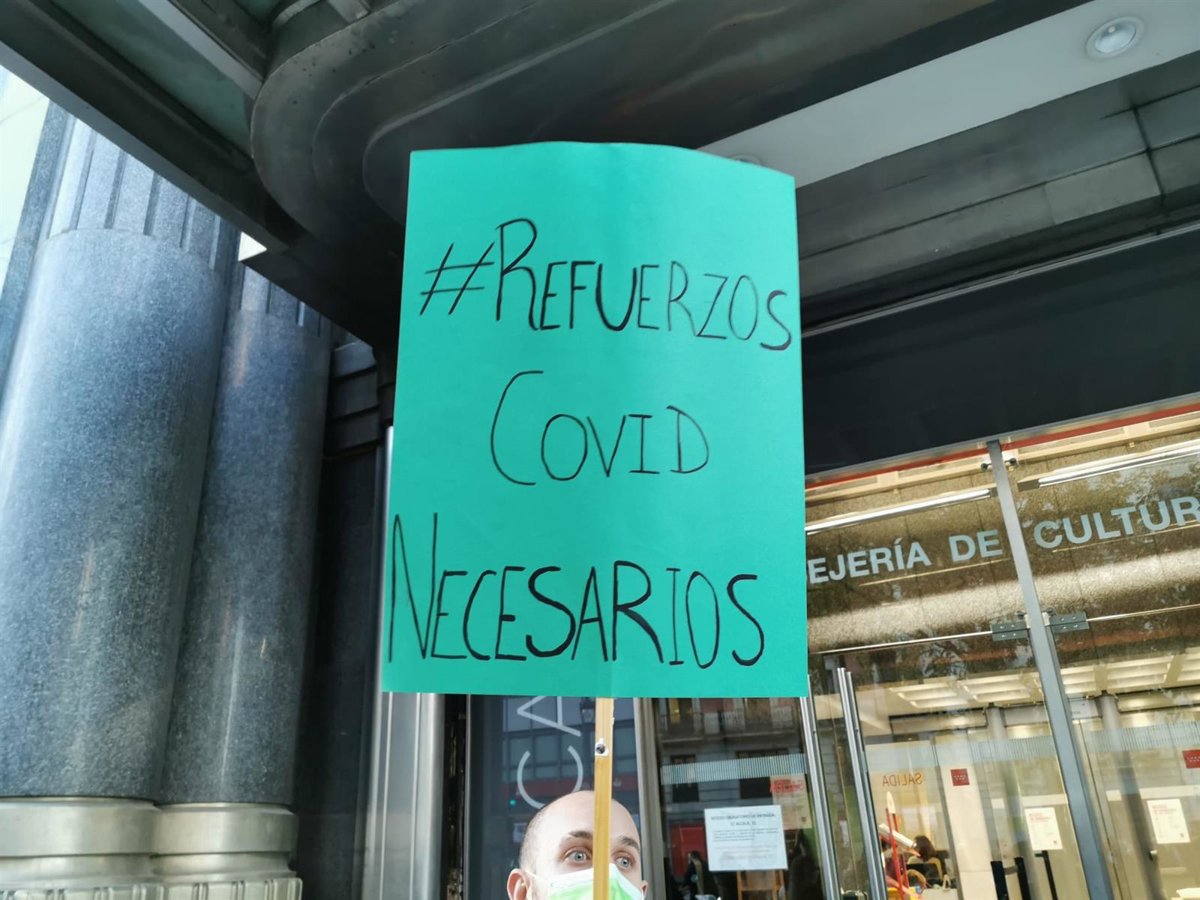 #REFUERZOS
COVID
NECESARIOS
EJERÍA DE CULTUR
CA
SALIDA